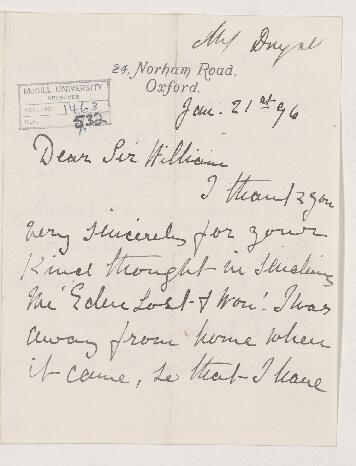 24, Norham Road,
Oxford.
McGILL UNIVERSITY
ARCHIVES
ACC. NO. 1463
REF. 532
Jan. 21st 96
Dear Sir William
I thank you
very sincerely for your
kind thought in sending
me 'Eden Lost & Won'. I was
away from home when
it came, so that I have